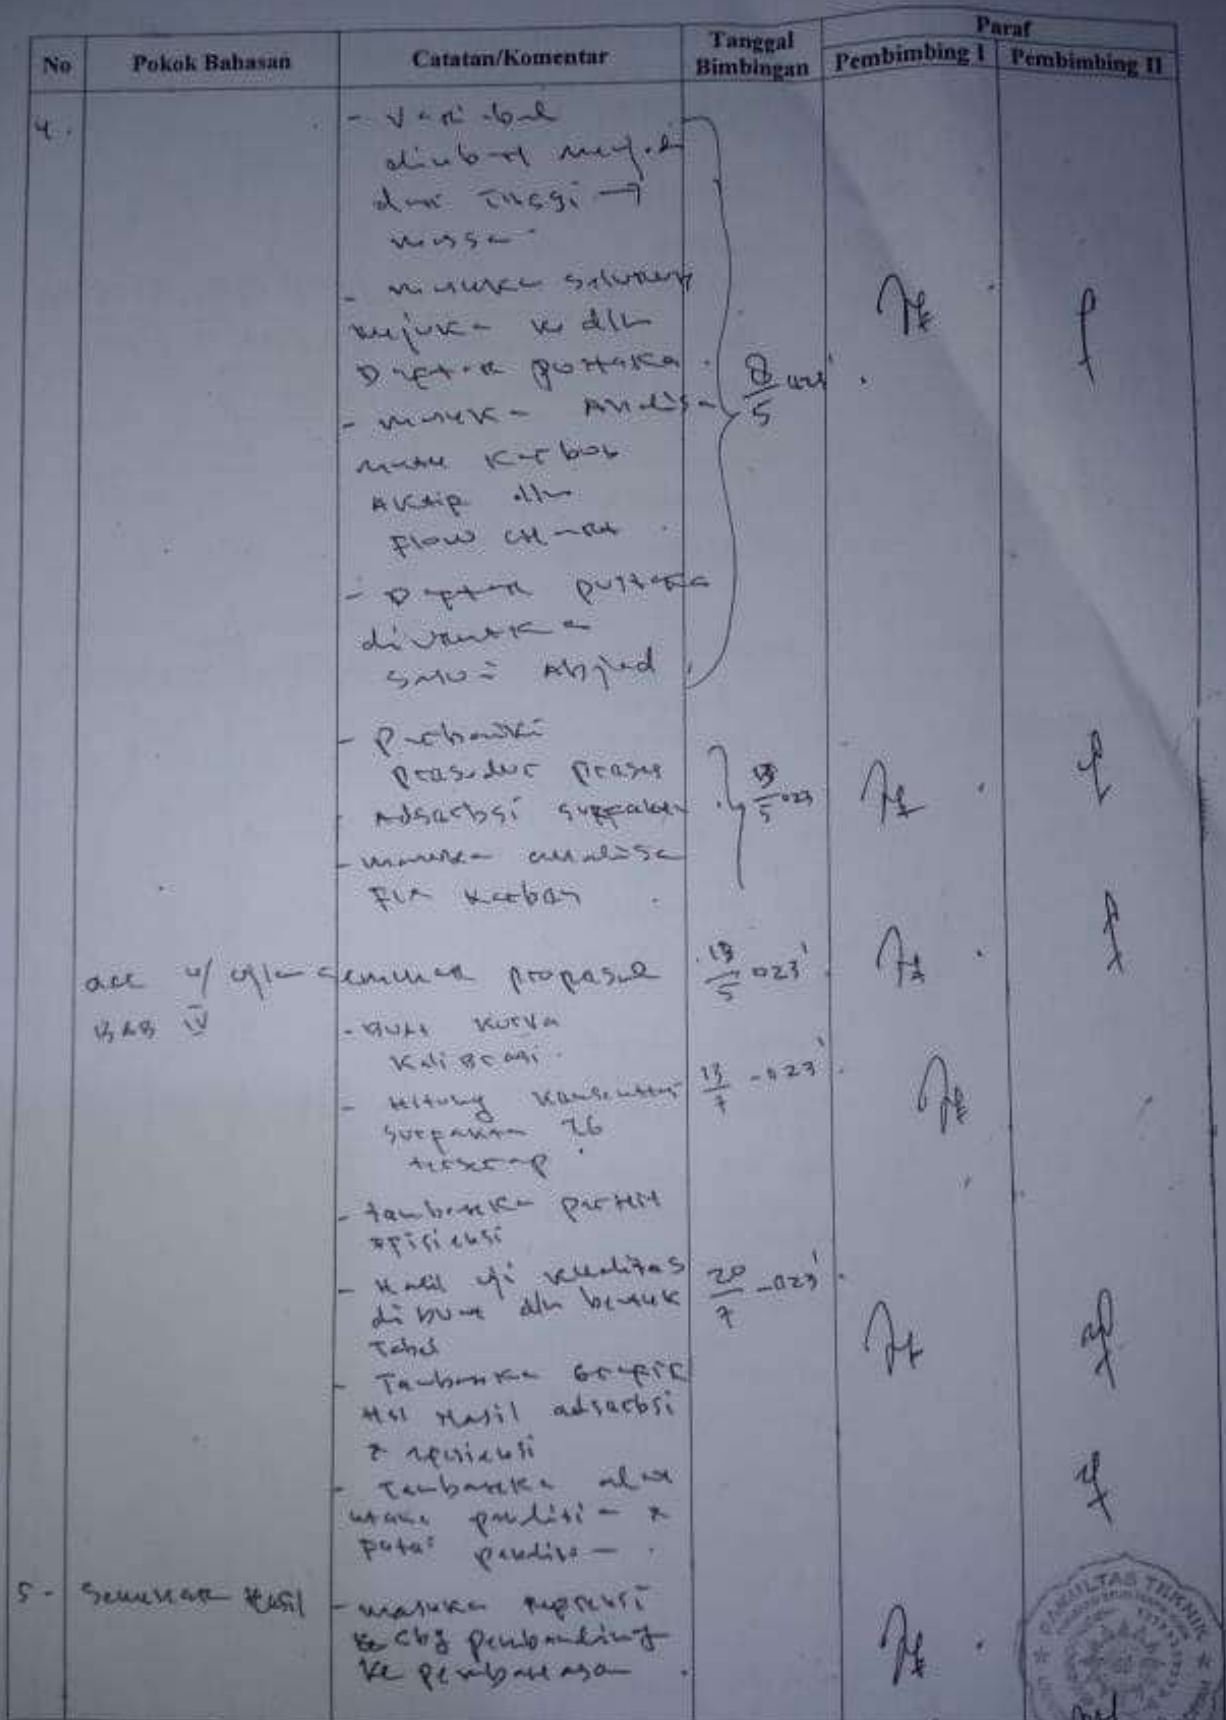 No
Pokok Bahasan
Catatan/Komentar
Tanggal
Bimbingan
Paraf
Pembimbing I
Pembimbing II
4.
- Varibel
diubah menjadi
dari Tinggi →
massa
- masukan seluruh
rujukan ke dlm
Daptar pustaka.
- masukan Analisa
mutu Karbon
Aktip dlm
Flow chart.
- Daptar pustaka
diurutkan
sesuai Abjad
8/5 023'
- Perbaiki
prosedur proses
Adsorbsi surpaktan
- masukan analisa
karbon
13/5 023
acc u/ ujian seminar proposal
13/5 023'
BAB IV
- Buat kurva
Kalibrasi.
- Hitung konsentrasi
surpaktan
terserap.
13/7 - 023'
- tambahkan perhit
episiensi
- Hasil uji kualitas
di buat dlm bentuk
Tabel
20/7 - 023'
- Tambahkan Grapik
Hasil adsorbsi
& epsiensi
- Tambahkan alat
utama penelitian &
penelitian.
5 -
Seminar Hasil
- masukan repsensi
pembanding
ke pembahasan.
FAKULTAS TEKNIK